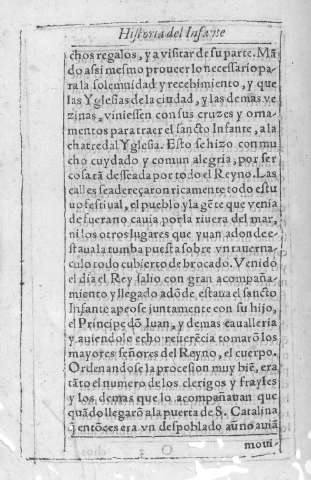 Historia del Infante
chos regalos, y a visitar de su parte. Mã
do assi mesmo proueer lo necessario pa-
ra la solemnidad y recebimiento, y que
las Yglesias de la ciudad, y las demas ve
zinas, viniessen con sus cruzes y orna-
mentos para traer el sancto Infante, a la
chatredal Yglesia. Esto se hizo con mu
cho cuydado y comun alegria, por ser
cosa tã desseada por todo el Reyno. Las
calles se adereçaron ricamente todo estu
uo festiual, el pueblo y la gẽte que venia
de fuera no cauia por la riuera del mar,
ni los otros lugares que yuan adonde e-
staua la tumba puesta sobre vn tauerna-
culo todo cubierto de brocado. Venido
el dia el Rey salio con gran acompaña-
miento y llegado adõde estaua el sancto
Infante apeose juntamente con su hijo,
el Principe dõ Iuan, y demas caualleria
y auiendole echo reuerẽcia tomarõ los
mayores señores del Reyno, el cuerpo.
Ordenandose la procesion muy biẽ, era
tãto el numero de los clerigos y frayles
y los demas que lo acompañauan que
quãdo llegarõ a la puerta de S. Catalina
q̃ entõces era vn despoblado aũ no auiã
moui-